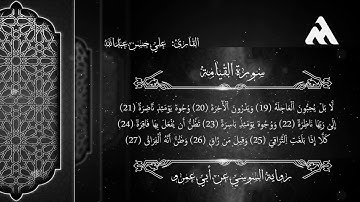 القارئ: علي حسن
سورة القيامة
لَا بَلْ يُحِبُّونَ الْعَاجِلَةَ (19) وَيَذَرُونَ الْآخِرَةَ (20) وُجُوهٌ يَوْمَئِذٍ نَاضِرَةٌ (21)
إِلَى رَبِّهَا نَاظِرَةٌ (22) وَوُجُوهٌ يَوْمَئِذٍ بَاسِرَةٌ (23) تَظُنُّ أَن يُفْعَلَ بِهَا فَاقِرَةٌ (24)
كَلَّا إِذَا بَلَغَتِ التَّرَاقِيَ (25) وَقِيلَ مَن رَّاقٍ (26) وَظَنَّ أَنَّهُ الْفِرَاقُ (27)
رواية السوسي عن أبي عمرو